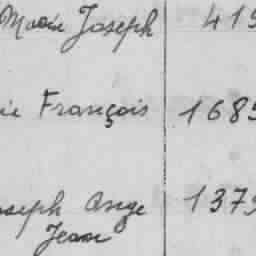 Marie Joseph 419
ie François 1685
oseph Ange 1379
Jean